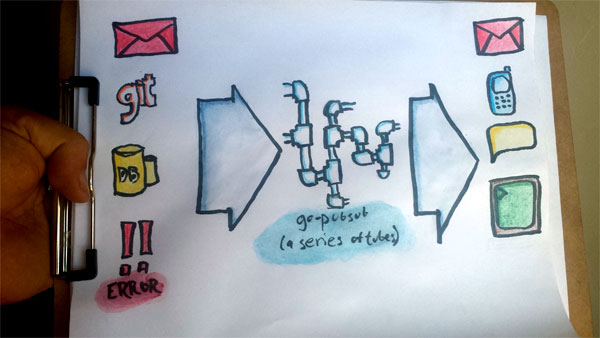 git
DB
ERROR
go-pubsub
(a series of tubes)